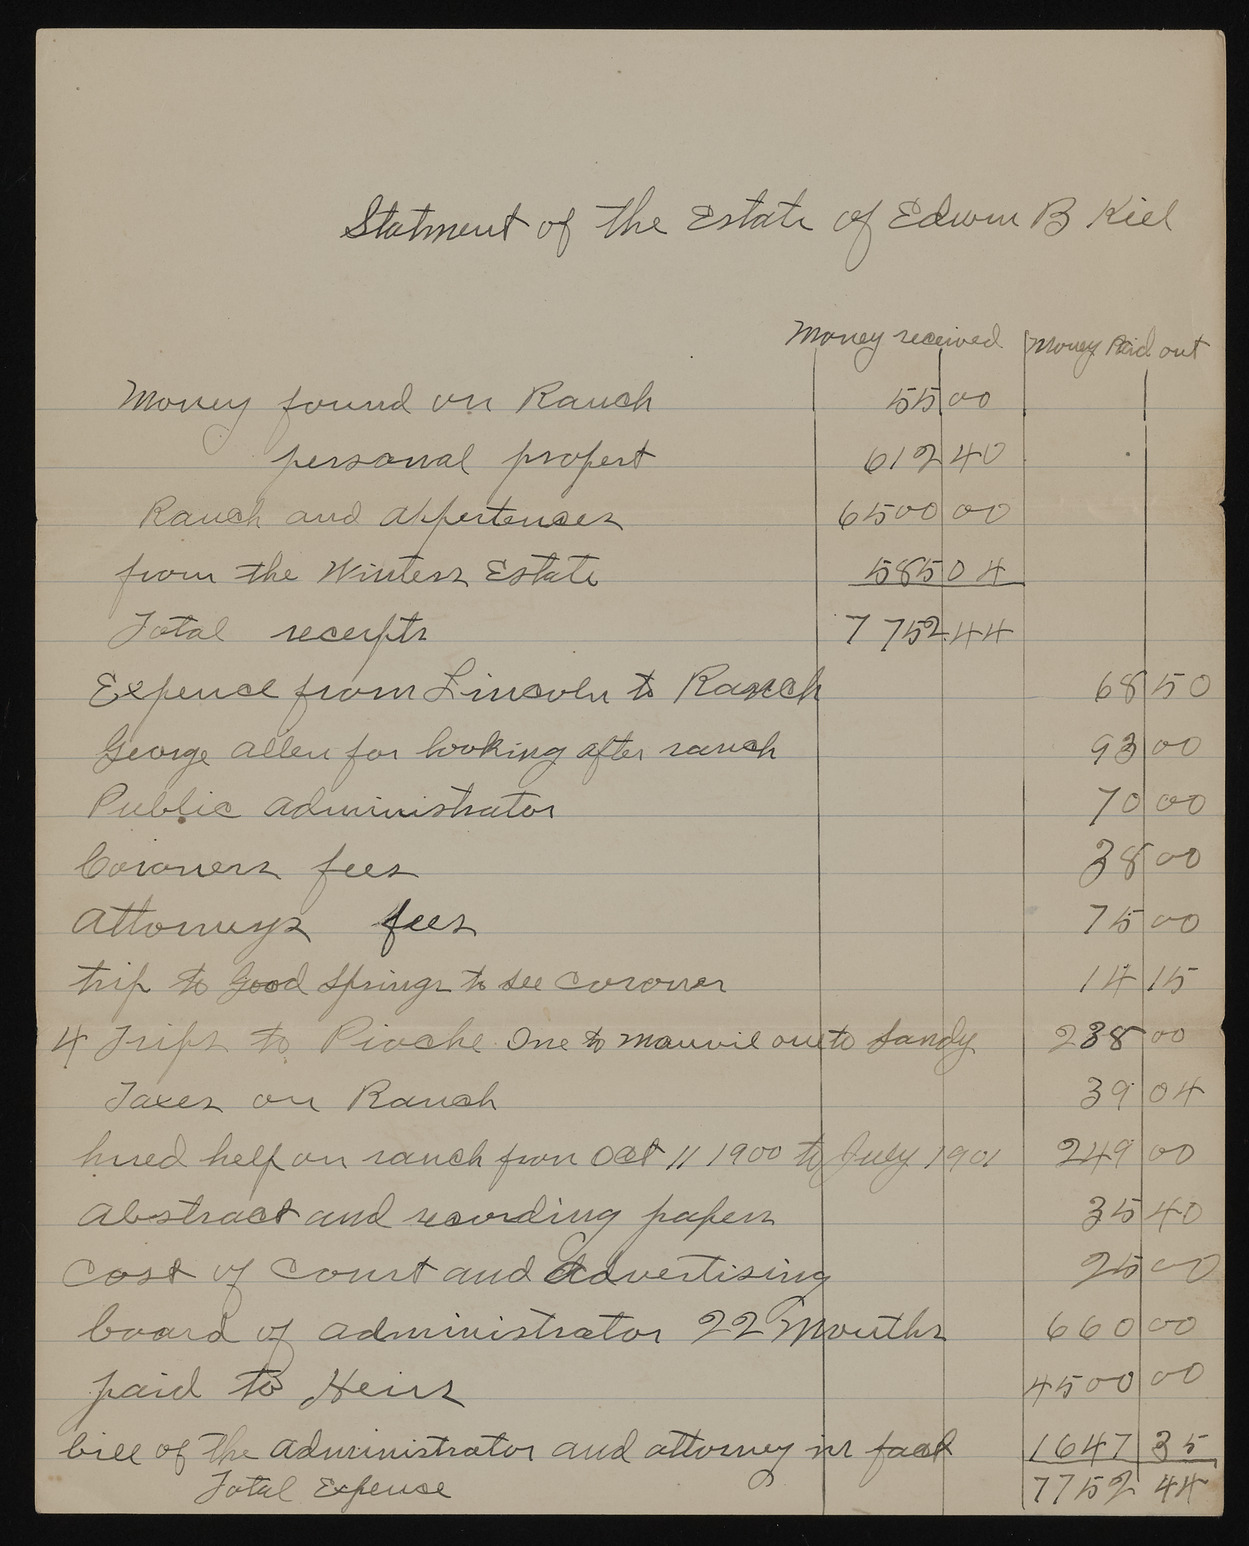 Statment of the Estate of Edwin B Kiel
Money received Money Paid out
Money found on Ranch 55 00
personal propert 612 40
Ranch and appertences 6500 00
from the Winters Estate 585 04
Total receipts 7 752.44
Expence from Lincoln to Ranch 68 50
George Allen for looking after ranch 93 00
Public administrator 70 00
Coroners fees 38 00
Attorneys fees 75 00
trip to Good Springs to see coroner 14 15
4 Trips to Pioche One to Manvil one to Sandy 238 00
Taxes on Ranch 39 04
hired help on ranch from Oct 11 1900 to July 1901 249 00
Abstract and recording papers 35 40
Cost of Court and Advertising 25 00
board of administrator 22 Months 660 00
paid to Heirs 4500 00
bill of the Administrator and attorney in fact 1647 35
Total Expense 7752 44